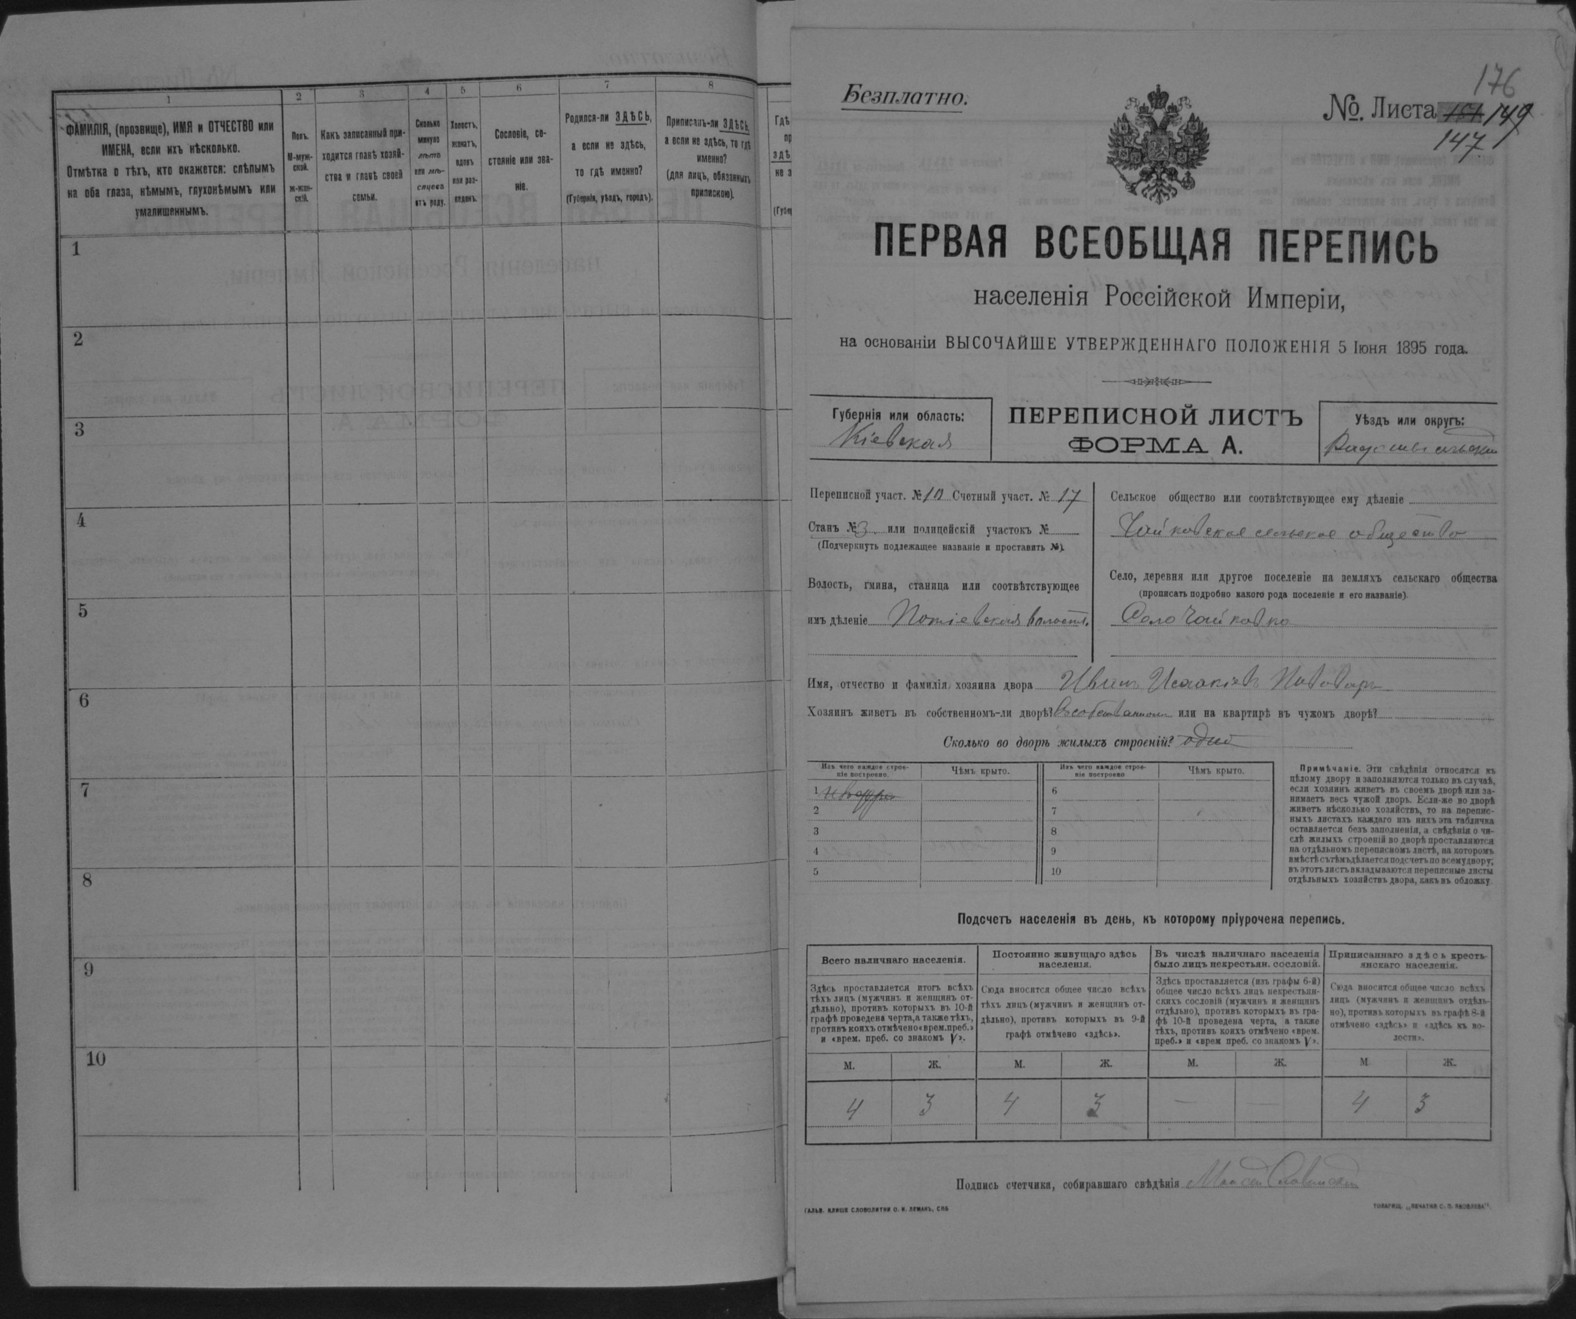 1
2
3
4
5
6
7
8
ФАМИЛІЯ, (прозвище), ИМЯ и ОТЧЕСТВО или
ИМЕНА, если ихъ нѣсколько.
Отмѣтка о тѣхъ, кто окажется: слѣпымъ
на оба глаза, нѣмымъ, глухонѣмымъ или
умалишеннымъ.
Полъ.
М-муж-
ской.
ж-жен-
скій.
Какъ записанный при-
ходится главѣ хозяй-
ства и главѣ своей
семьи.
Сколько
минуло
лѣтъ
или мѣ-
сяцевъ
отъ роду.
Холостъ,
женатъ,
вдовъ
или раз-
веденъ.
Сословіе, со-
стояніе или зва-
ніе.
Родился-ли ЗДѢСЬ,
а если не здѣсь,
то гдѣ именно?
(Губернія, уѣздъ, городъ).
Приписанъ-ли ЗДѢСЬ,
а если не здѣсь, то гдѣ
именно?
(для лицъ, обязанныхъ
припискою).
1
2
3
4
5
6
7
8
9
10
176
Безплатно.
№. Листа 149
147
ПЕРВАЯ ВСЕОБЩАЯ ПЕРЕПИСЬ
населенія Россійской Имперіи,
на основаніи ВЫСОЧАЙШЕ УТВЕРЖДЕННАГО ПОЛОЖЕНІЯ 5 Іюня 1895 года.
Губернія или область:
Кіевская
ПЕРЕПИСНОЙ ЛИСТЪ
ФОРМА А.
Уѣздъ или округъ:
Радомысльскій
Переписной участ. №10 Счетный участ. № 17
Станъ №3 или полицейскій участокъ №
(Подчеркнуть подлежащее названіе и проставить №).
Волость, гмина, станица или соотвѣтствующее
имъ дѣленіе Потіевская волость.
Сельское общество или соотвѣтствующее ему дѣленіе
Чайковское сельское общество
Село, деревня или другое поселеніе на земляхъ сельскаго общества
(прописать подробно какого рода поселеніе и его названіе).
Село Чайковка
Имя, отчество и фамилія хозяина двора Иванъ Исаакіевъ
Хозяинъ живетъ въ собственномъ-ли дворѣ? Въ собственномъ или на квартирѣ въ чужомъ дворѣ?
Сколько во дворѣ жилыхъ строеній?
Изъ чего каждое строе-
ніе построено
Чѣмъ крыто.
Изъ чего каждое строе-
ніе построено
Чѣмъ крыто.
1
2
3
4
5
6
7
8
9
10
Примѣчаніе. Эти свѣдѣнія относятся къ
цѣлому двору и заполняются только въ случаѣ,
если хозяинъ живетъ въ своемъ дворѣ или за-
нимаетъ весь чужой дворъ. Если-же во дворѣ
живетъ нѣсколько хозяйствъ, то на перепис-
ныхъ листахъ каждаго изъ нихъ эта табличка
оставляется безъ заполненія, а свѣдѣнія о чи-
слѣ жилыхъ строеній во дворѣ проставляются
на отдѣльномъ переписномъ листѣ, на которомъ
вмѣстѣ съ тѣмъ дѣлается подсчетъ по всему двору;
въ этотъ листъ вкладываются переписные листы
отдѣльныхъ хозяйствъ двора, какъ въ обложку.
Подсчетъ населенія въ день, къ которому пріурочена перепись.
Всего наличнаго населенія.
Здѣсь проставляется итогъ всѣхъ
тѣхъ лицъ (мужчинъ и женщинъ от-
дѣльно), противъ которыхъ въ 10-й
графѣ проведена черта, а также тѣхъ,
противъ коихъ отмѣчено «врем. преб.»
и «врем. преб. со знакомъ V».
Постоянно живущаго здѣсь
населенія.
Сюда вносится общее число всѣхъ
тѣхъ лицъ (мужчинъ и женщинъ от-
дѣльно), противъ которыхъ въ 9-й
графѣ отмѣчено «здѣсь».
Въ числѣ наличнаго населенія
было лицъ некрестьян. сословій.
Здѣсь проставляется (изъ графы 6-й)
общее число всѣхъ лицъ некрестьян-
скихъ сословій (мужчинъ и женщинъ
отдѣльно), противъ которыхъ въ гра-
фѣ 10-й проведена черта, а также
тѣхъ, противъ коихъ отмѣчено «врем.
преб.» и «врем преб. со знакомъ V».
Приписаннаго здѣсь кресть-
янскаго населенія.
Сюда вносится общее число всѣхъ
лицъ (мужчинъ и женщинъ отдѣль-
но), противъ которыхъ въ графѣ 8-й
отмѣчено «здѣсь» и «здѣсь къ во-
лости».
М. Ж. М. Ж. М. Ж. М. Ж.
4 3 4 3 — — 4 3
Подпись счетчика, собиравшаго свѣдѣнія
ГАЛЬВ. КЛИШЕ СЛОВОЛИТНИ О. И. ЛЕМАНЪ, СПБ.
ТОВАРИЩ. „ПЕЧАТНЯ С. П. ЯКОВЛЕВА“.